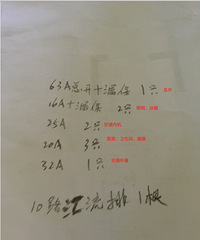 63A总开+漏保 1只
16A+漏保 2只
25A 2只 空调内机
20A 3只
32A 1只
10路汇流排 1根